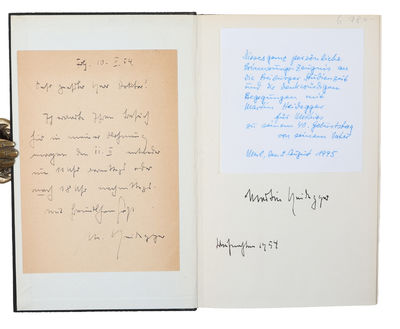 10. I. 54
Sehr geehrter Herr
Ich erwarte Ihren Besuch
hier in meiner Wohnung
morgen den 11. I. entweder
um 11 Uhr vormittags oder
nach 18 Uhr nachmittags.
mit freundlichem Gruß
M. Heidegger
6. 780.-
Dieses ganz persönliche
Erinnerungs-Zeugnis an
die Freiburger Studienzeit
und die denkwürdigen
Begegnungen mit
Martin Heidegger
für
zu seinem 40. Geburtstag
von seinem Vater
den 2. August 1995
Martin Heidegger
1954